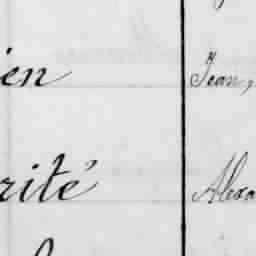 ien Jean,
rité Alexa